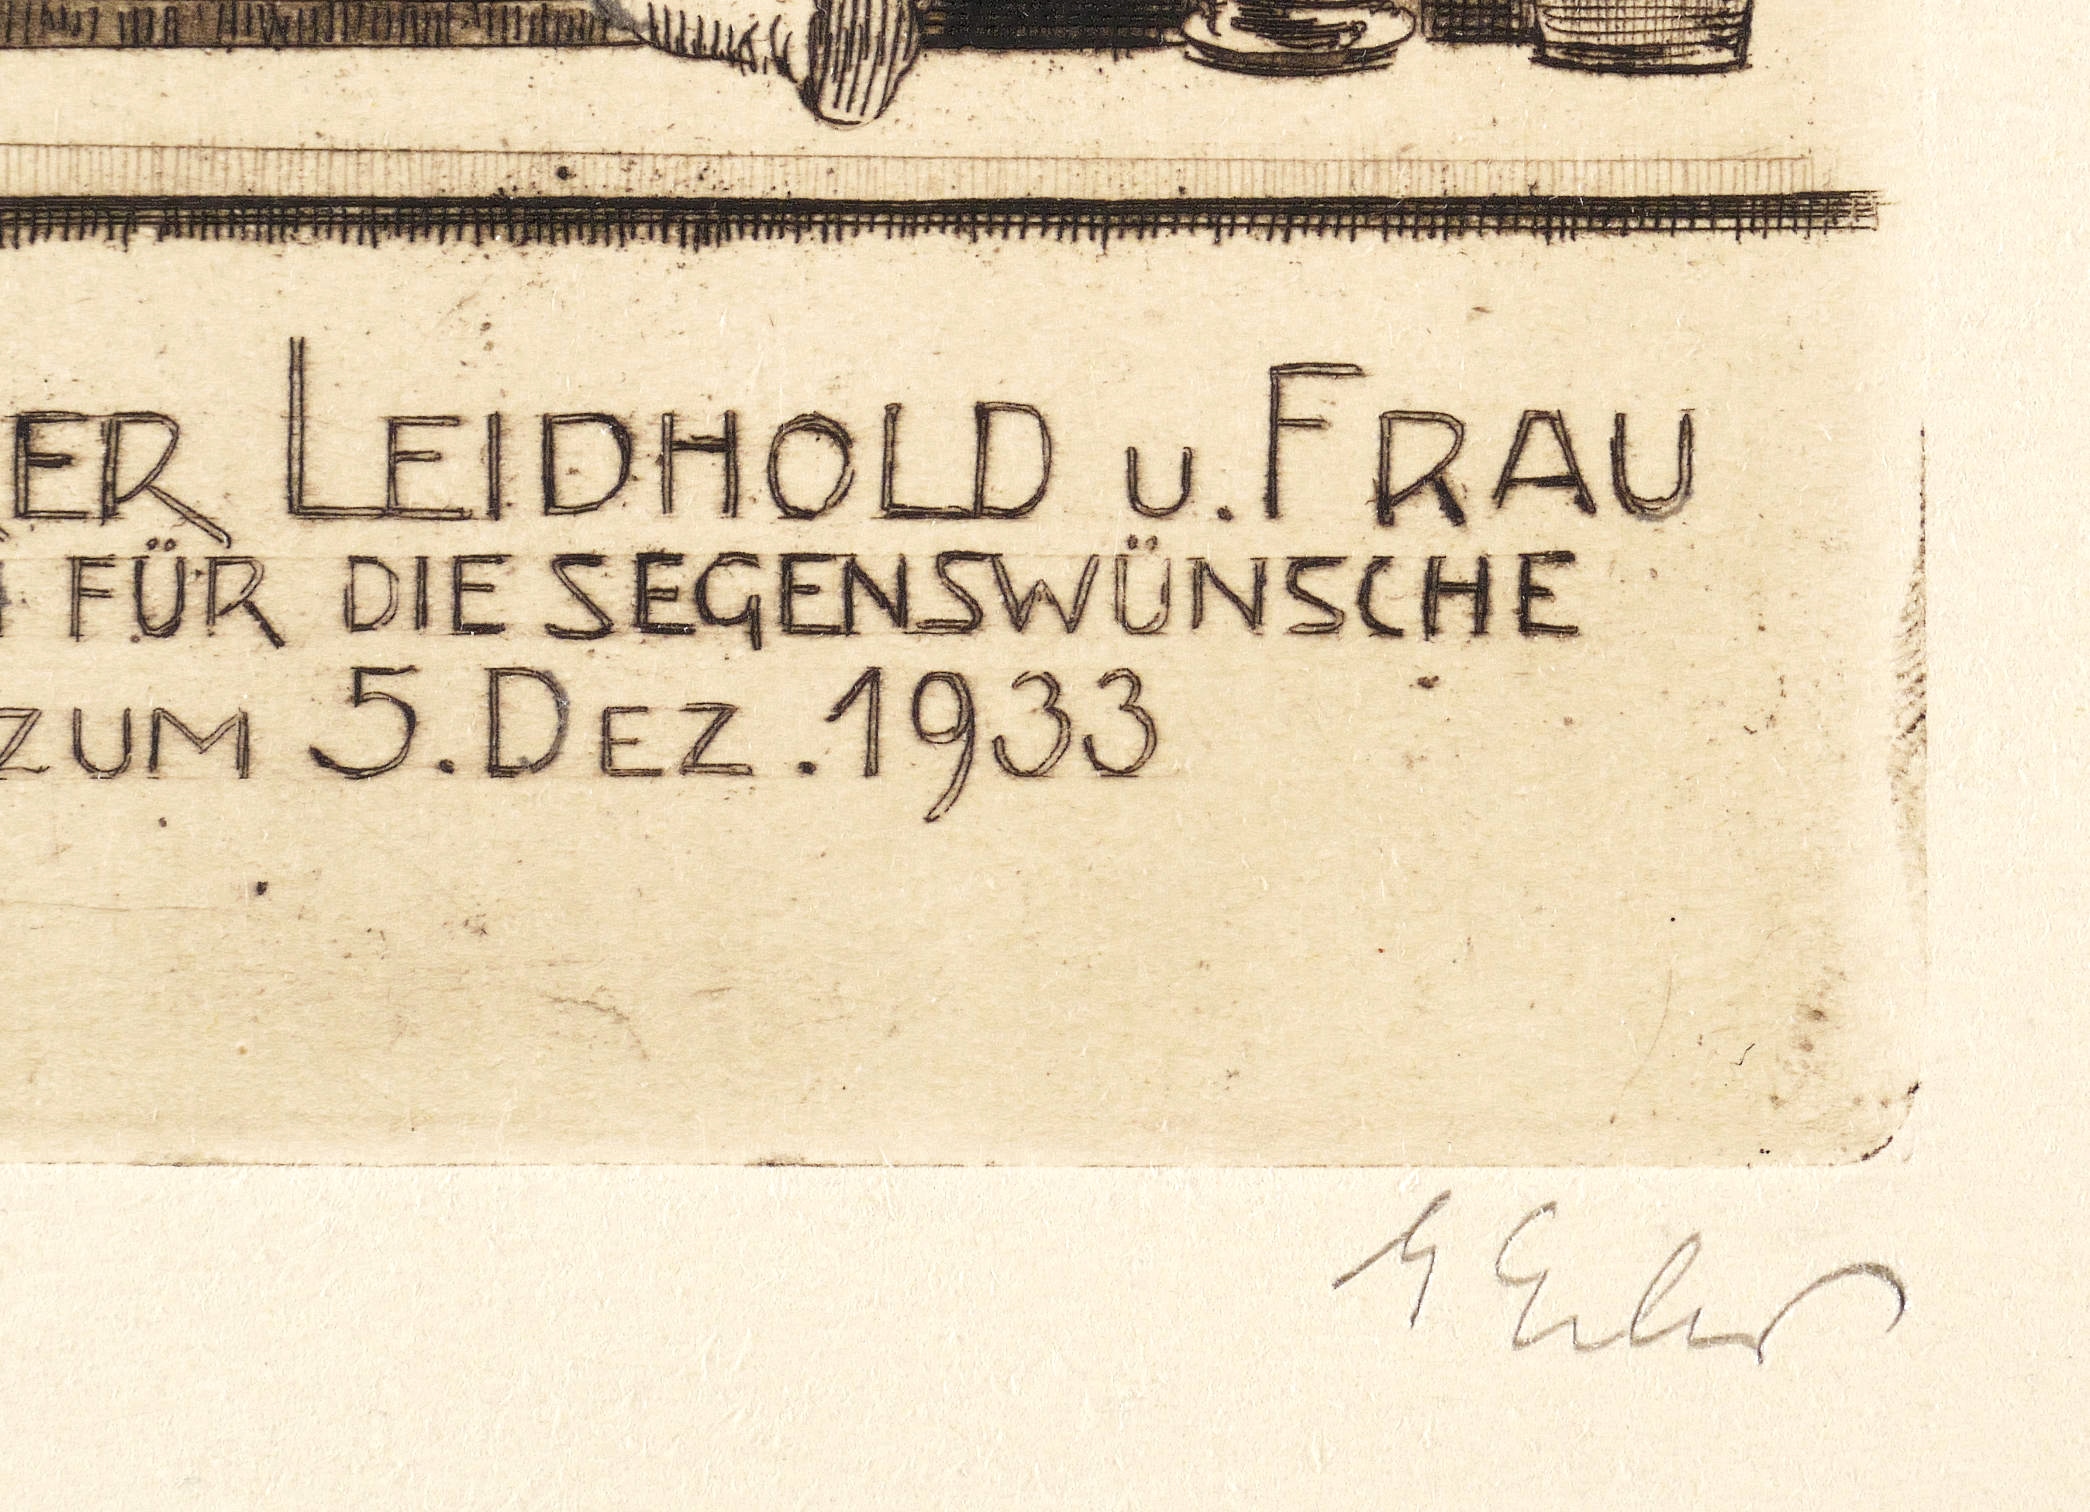 ER LEIDHOLD u. FRAU
FÜR DIE SEGENSWÜNSCHE
ZUM 5. DEZ. 1933